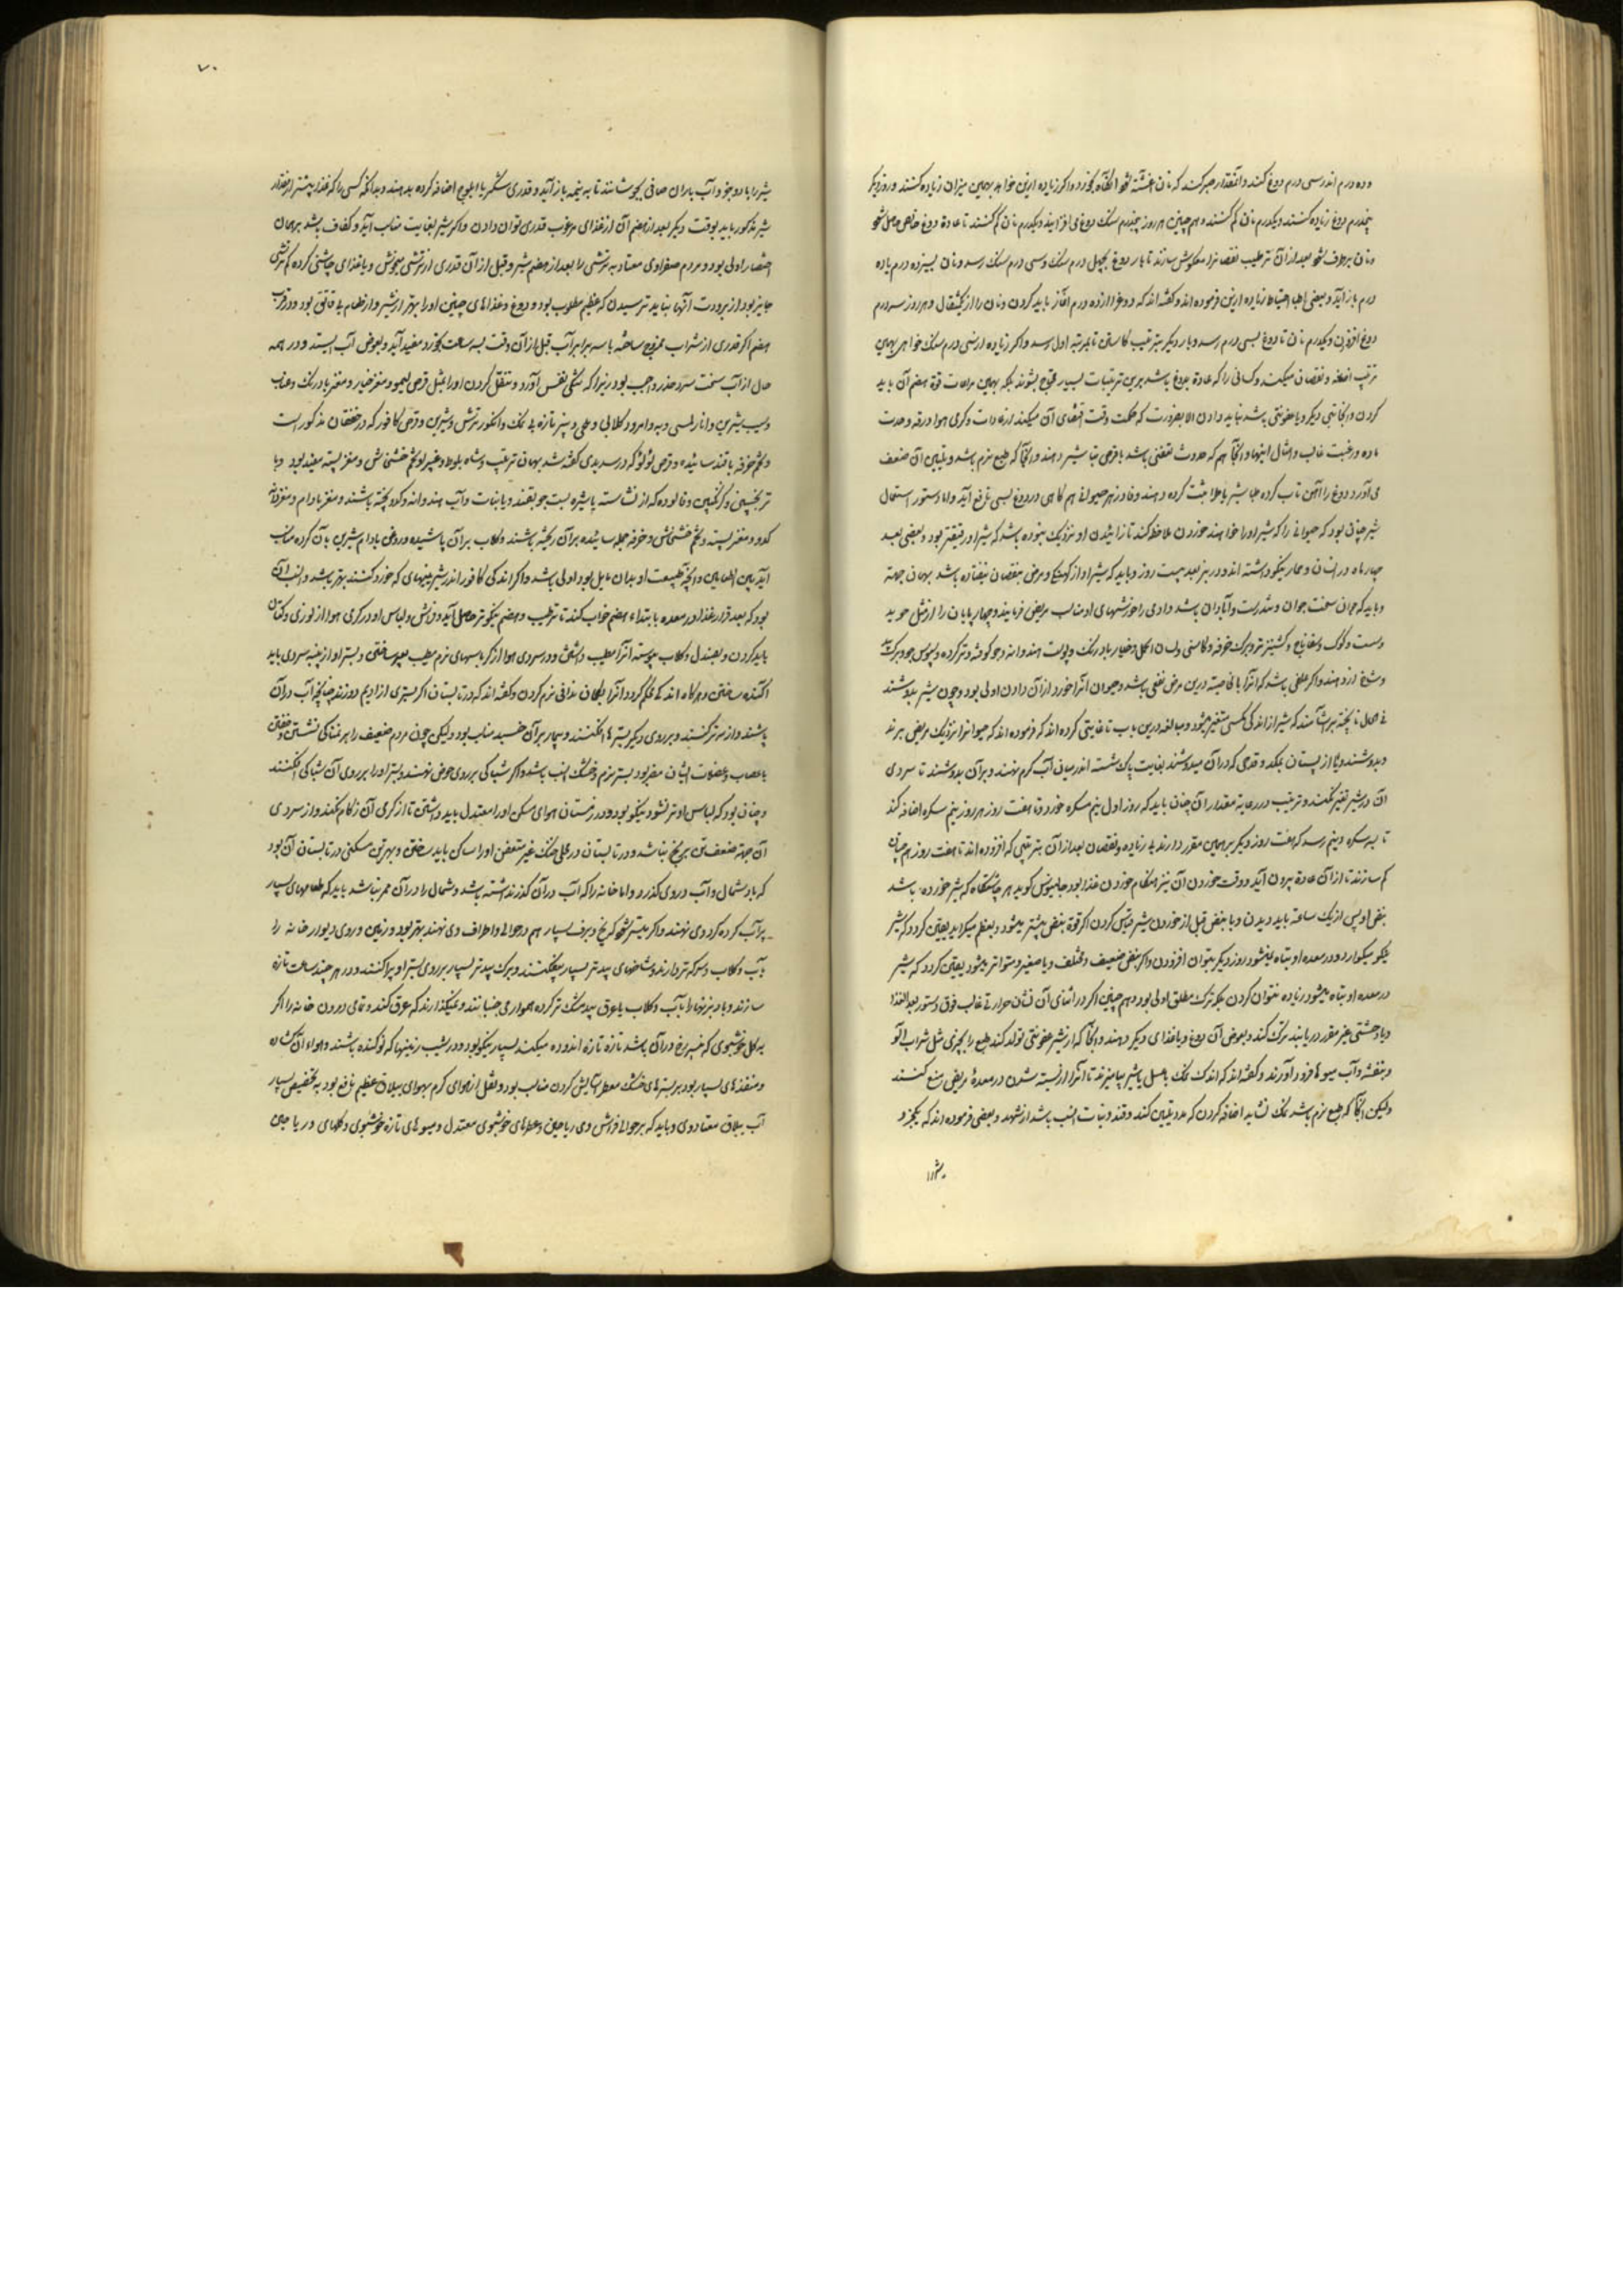 وده درم اندر سی درم دوغ کنند وآنقدر صبر کنند که نان آغشته شود آنگاه بخورد واکر زیاده ازین خواهد بهمین میزان زیاده کنند وروز دیکر
پنجدرم دوغ زیاده کنند ویکدرم نان کم کنند وهم چنین هر روز پنجدرم سنک دوغ می افزایند ویکدرم نان کم کنند تا عادة دوغ خالص حاصل شود
ونان برطرف شود بعد ازآن بترتیب نقصانرا معکوس سازند تا باز دوغ بچهل درم سنک وسی درم سنک رسد ونان بپانزده درم یا ده
درم باز آید وبعضی اطبا احتیاط زیاده ازین فرموده اند وکفته اند که دوغ را از ده درم آغاز باید کردن ونان را از یکمثقال وهر روز سه درم
دوغ افزودن ویکدرم نان تا دوغ بسی درم رسد وبار دیکر بترتیب کاستن تا بمرتبه اول رسد واکر زیاده از سی درم سنک خواهد بهمین
ترتیب اضافه ونقصان میکنند وکسانی را که عادة بدوغ باشد بدین ترتیبات بسیار محتاج نشوند بلکه بهمین مراعات قوة هضم آن باید
کردن وآنجا تبی دیکر ویا عفونتی باشد نباید دادن الا بضرورت که حکمت وقت اقتضای آن میکند از عادات وکرمی هوا ورقه وحدت
ماده ورغبت غالب وامثال اینها وآنجا هم که حدوث تعفنی باشد با قرص تباشیر دهند وآنجا که طبع نرم باشد وتلیین آن ضعف
می آورد دوغ را آهن تاب کرده طباشیر یا طلا مثبت کرده دهند
شیر چنان بود که حیوانی را که شیر او را خواهند خوردن ملاحظه کنند تا زائیدن او نزدیک نبوده باشد که شیر او رقیقتر بود وبعضی بعد
چهار ماه در انسان وحمار نیکو داشته اند ودر بز بعد بیست روز وباید که شیر او از کهنکی ومرض بنقصان نیفتاده باشد بهمان جهته
وباید که حیوان سخت جوان وتندرست وآبادان باشد وادی را خورشهای او مناسب مریض فرمایند وچهارپایان را از مثل خوید
وشیخ ازو دهند واکر علفی باشد که آنرا بالخاصیته درین مرض نفعی باشد وحیوان آنرا خورد ازآن دادن اولی بود وچون شیر بدوشند
فی الحال ناپخته بیاشامند که شیر از اندکی مکثی متغیر میشود ومبالغه درین باب تا غایتی کرده اند که فرموده اند که حیوانرا نزدیک مریض برند
وبدوشند ویا از پستان بمکد وقدحی که درآن میدوشند بغایت پاک شسته اندر میان آب کرم نهند وبرآن بدوشند تا سردی
آن در شیر تغیر نکند وترتیب در رعایة مقدار آن چنان باید که روز اول نیم سکره خورد وتا هفت روز هر روز نیم سکره اضافه کند
تا بسه سکره ونیم رسد که هفت روز دیکر بر همین مقرر دارند بی زیاده ونقصان بعد ازآن بترتیبی که افزوده اند تا هفت روز هم چنان
کم سازند تا ازآن عادة بیرون آید ووقت خوردن آن نیز هنکام خوردن غذا بود جالینوس کوید هر چاشتکاه که شیر خورده باشد
نبض او پس از یک ساعته باید دیدن وبا نبض قبل از خوردن شیر قیاس کردن اکر قوة نبض بیشتر میشود وبعظم میکراید یقین کردد که شیر
نیکو میکوارد ودر معده او تباه نمیشود روز دیکر بتوان افزودن واکر نبض ضعیف ومختلف ویا صغیر ومتواتر میشود یقین کردد که شیر
در معده او تباه میشود زیاده نتوان کردن بلکه ترک مطلق اولی بود وهم چنین اکر در اثنای آن نشان حرارتی غالب فوق دستور بعد الغذا
ویا وحشتی غیر مقرر دریابند ترک کنند وبعوض آن دوغ ویا غذای دیکر دهند وآنجا که از شیر عفونتی تولد کند طبع را بچیزی مثل شراب آلو
وبنفشه وآب میوها فرود آورند وکفته اند که اندک نمک یا عسل با شیر بیامیزند تا آنرا از بسته شدن در معدۀ مریض منع کنند
ولیکن آنجا که طبع نرم باشد نمک نشاید اضافه کردن که مدد تلیین کند وقند ونبات انسب باشد از شهد وبعضی فرموده اند که یکجزو
شیر را
۷۰
شیر را با دو جزو آب باران صافی بجوشانند تا به نیمه باز آید وقدری سکر یا ابلوج اضافه کرده بدهند وبدانکه کسی را که غذا بیشتر از مقدار
شیر مذکور باید بوقت دیکر بعد از هضم آن از غذای مرغوب قدری توان دادن واکر شیر بغایت مناسب آید وکفاف باشد بر همان
اختصار اولی بود ومردم صفراوی معتاد به ترشی را بعد از هضم شیر وقبل ازآن قدری از ترشی میخوش ویا غذای چاشنی کرده کم ترشی
جایز بود از برودت آنها نباید ترسیدن که عظیم مطلوب بود ودوغ وغذاهای چنین او را بهتر از شیر
هضم اکر قدری از شراب ممزوج ساخته با سه برابر آب قبل ازآن وقت بسه ساعت بخورد مفید آید وبعوض آب ایستد ودر همه
حال از آب سخت سرد حذر واجب بود زیرا که تنکی نفس آورد وتنقل کردن او را بمثل قرص لیمو ومغز خیار ومغز بادرنک وعناب
وسیب شیرین وانار ملسی وبه وامرود کلابی وپنیر تازه بی نمک وانکور ترش وشیرین وقرص کافور که در خفقان مذکور است
وتخم خرفه با قند سائیده وقرص لؤلؤ که در سدیدی کفته شد بهمان ترتیب وشاه بلوط وغیر او وتخم خشخاش ومغز پسته مفید بود وبا
کدو ومغز پسته وتخم خشخاش وخرفه جمله سائیده برآن ریخته باشند وکلاب برآن پاشیده وروغن بادام شیرین بآن کرده مناسب
بود که بعد قرار غذا در معده بابتداء هضم خواب کند تا ترطیب وهضم نیکوتر حاصل آید وفراش ولباس او در کرمی هوا از توزی وکتان
باید کردن وبصندل وکلاب پیوسته آنرا مطیب داشتن ودر سردی هوا از کرباسهای نرم مطیب بعبیر ساختن وبستر او از پنبه سردی باید
آکنده ساختن وهرکاه اندکی محکم کردد آنرا بکمان ندافی نرم کردن وکفته اند که در تابستان اکر بستری از ادیم دوزند چنانچه آب درآن
پاشند واز سر تر کنند وبر روی دیکر بسترها افکنند وبیمار برآن خسبد مناسب بود ولیکن چون مردم ضعیف را بر نمناکی نشستن وخفتن
باعصاب وعضلات ایشان مضر بود بستر نرم وخشک انسب باشد واکر شباکی بر روی حوض نهند وبستر او را بر روی آن شباک افکنند
وچنان بود که لباس او تر نشود نیکو بود ودر زمستان هوای مسکن او را معتدل باید داشتن تا از کرمی آن زکام نکند واز سردی
آن جهته ضعف تن برنج نباشد ودر تابستان در محلی خنک غیر متعفن او را ساکن باید ساختن وبهترین مسکنی در تابستان آن بود
که باد شمال وآب در وی کذرد واما خانه را که آب درآن کذر نداشته باشد وشمال را درآن ممر نباشد باید که طغارهای بسیار
پر آب کرده کرد وی نهند واکر میسر شود که یخ وبرف بسیار هم در حوالی واطراف وی نهند بهتر بود وزمین وروی دیوار خانه را
بآب وکلاب وسرکه تر دارند وشاخهای بید تر بسیار بیفکنند وبرک بید تر بسیار بر روی بستر او پراکنند ودر هر چند ساعت تازه
سازند وبادبزنها را بآب وکلاب یا عرق بید مشک تر کرده هموار می جنبانند ونمیکذارند که عرق کند وتمامی درون خانه را اکر
به کل خوشبوی که خس برنج درآن باشد تازه تازه اندوده میکنند بسیار نیکو بود ودر نشیب زمینها که نو کنده باشند وهواء آن کشاده
ومنفذهای بسیار بود بر بسترهای خشک معطر آسایش کردن مناسب بود ونقل از هوای کرم بهوای ییلاق عظیم نافع بود به تخصیص بسیار
آب ییلاق معتاد وی وباید که بر حوالی فراش وی ریاحین وعطرهای خوشبوی معتدل ومیوهای تازه خوشبوی وکلهای وریاحین